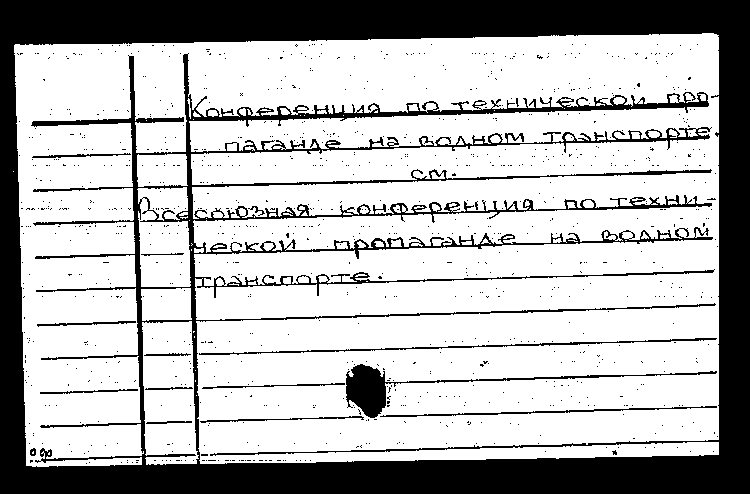 Конференция по технической про-
паганде на водном транспорте.
см.
Всесоюзная конференция по техни-
ческой пропаганде на водном
транспорте.